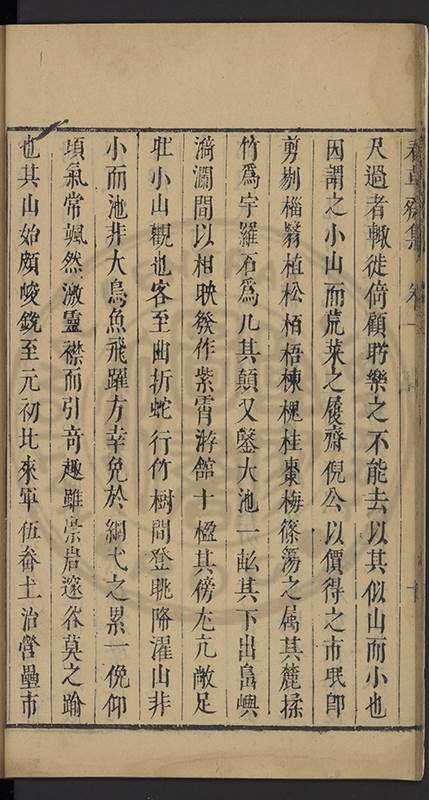 春草齋集 卷一 十
尺過者輙徙倚顧眄樂之不能去以其似山而小也
因謂之小山而荒萊之履齋倪公以價得之市氓卽
剪剔榴翳植松栢梧楝槐桂棗梅篠簜之屬其麓揉
竹爲宇羅石爲几其顛又鑿大池一畝其下出島嶼
漪瀾間以相映發作紫霄游館十楹其傍尤亢敞足
壯小山觀也客至曲折蛇行竹樹間登眺降濯山非
小而池非大鳥魚飛躍方幸免於網弋之累一俛仰
頃氣常颯然激靈襟而引奇趣雖崇岩邃谷莫之踰
也其山始頗峻銳至元初比來軍伍畚土治營壘市